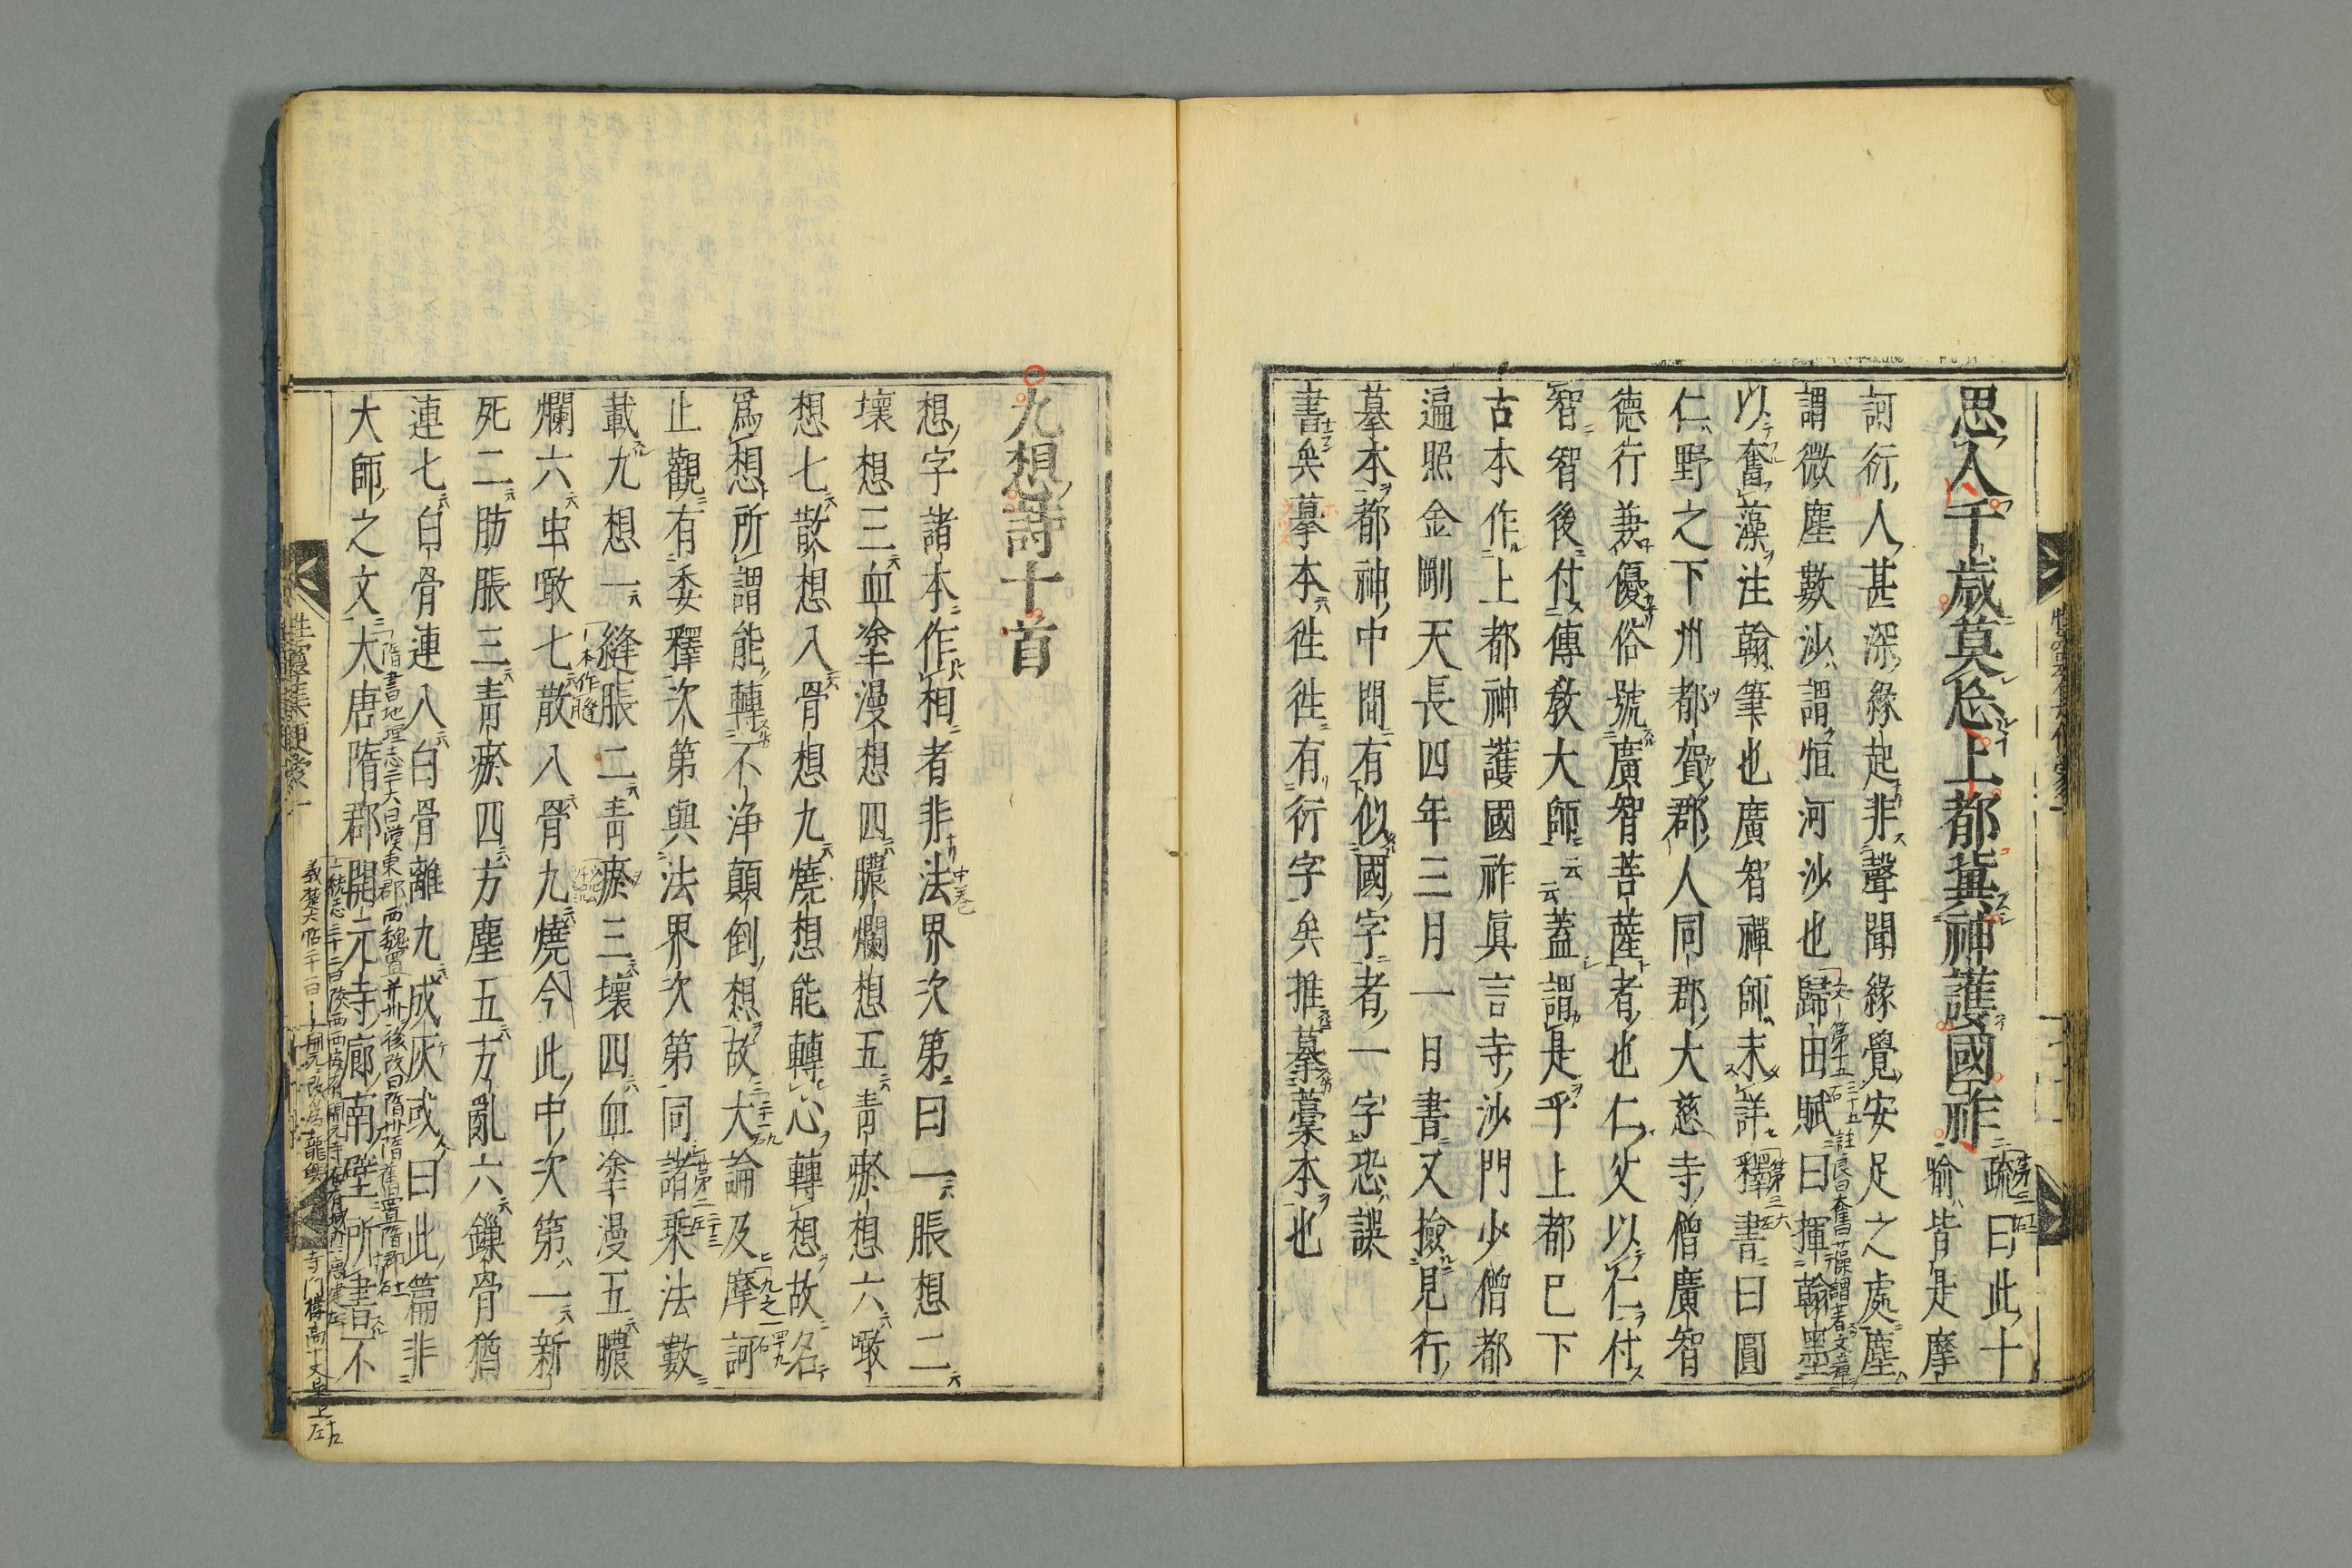 思人千歳莫忘上都冀神護國祚
疏曰此十
喻皆是摩
訶衍人甚深緣起非聲聞緣覺安足之處塵
謂微塵數沙謂恒河沙也歸田賦曰揮翰墨
以奮藻注翰筆也廣智禪師未詳釋書曰圓
仁野之下州都賀郡人同郡大慈寺僧廣智
德行兼優俗號廣智菩薩者也仁父以仁付
智智後付傳教大師云云蓋謂是乎上都已下
古本作上都神護國祚眞言寺沙門少僧都
遍照金剛天長四年三月一日書又撿見行
摹本都神中間有似國字者一字恐誤
書矣摹本徃徃有衍字矣推摹藁本也
九想詩十首
想字諸本作相者非法界次第曰一脹想二
壞想三血塗漫想四膿爛想五青瘀想六噉
想七散想八骨想九燒想能轉心轉想故名
爲想所謂能轉不淨顛倒想故大論及摩訶
止觀有委釋次第與法界次第同諸乘法數
載九想一縫脹二青瘀三壞四血塗漫五膿
爛六虫噉七散八骨九燒今此中次第一新
死二肪脹三青瘀四方塵五方亂六鏁骨猶
連七白骨連八白骨離九成灰或曰此篇非
大師之文大唐隋郡開元寺廊南壁所書不